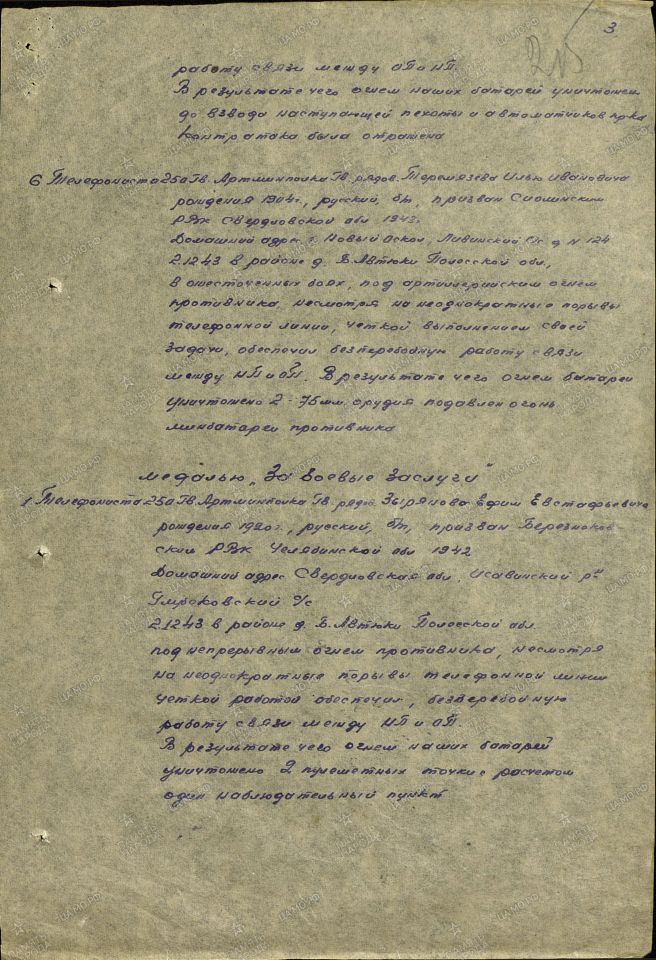 3
25
работу связи между ОП и НП.
В результате чего огнем наших батарей уничтожен
до взвода наступающей пехоты и автоматчиков пр-ка
Контратака была отражена
6 Телефониста 25а Гв. Артминполка Гв. рядов. Теремязева Илью Ивановича
рождения 1904г., русский, б/п, призван
РВК Свердловской обл. 1943г.
Домашний адрес г. Новый Оскол, Ливинский С/с д N 124
2.12.43 в районе д. Б. Автюки Полесской обл,
в ожесточенных боях, под артиллерийским огнем
противника несмотря на неоднократные порывы
телефонной линии, четкой выполнением своей
задачи, обеспечил безперебойную работу связи
между НП и ОП. В результате чего огнем батареи
уничтожено 2 - 75 мм. орудия подавлен огонь
минбатареи противника
медалью „За Боевые Заслуги"
1 Телефониста 25а Гв. Артминполка Гв. рядов. Зырянова Ефим Евстафьевича
рождения 1920г., русский, б/п, призван Березников-
ским РВК Челябинской обл 1942
Домашний адрес Свердловская обл. Исавинский р-н
С/с
2.12.43 в районе д. Б. Автюки Полесской обл.
под непрерывным огнем противника, несмотря
на неоднократные порывы телефонной линии
четкой работой обеспечил, безперебойную
работу связи между НП и ОП.
В результате чего огнем наших батарей
уничтожено 2 пулеметных точки с расчетом
один наблюдательный пункт